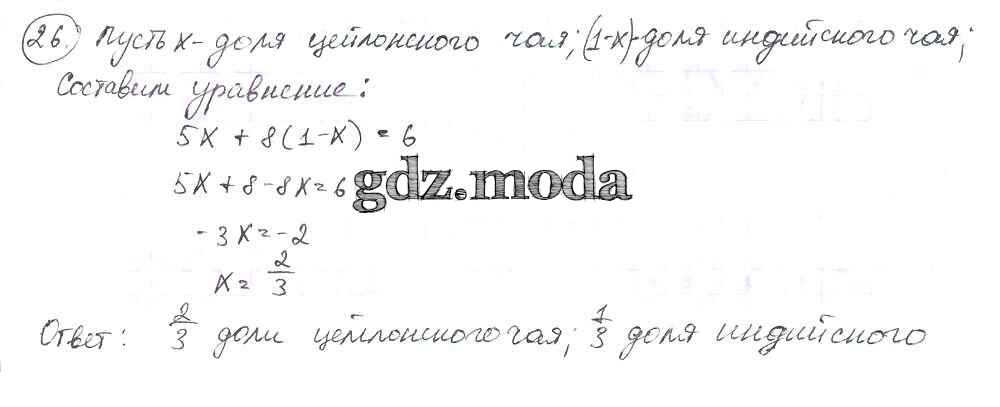 26. Пусть x - доля цейлонского чая; (1-x) - доля индийского чая;
Составим уравнение:
5x + 8(1-x) = 6
5x + 8 - 8x = 6
gdz.moda
-3x = -2
x = 2/3
Ответ: 2/3 доли цейлонского чая; 1/3 доля индийского